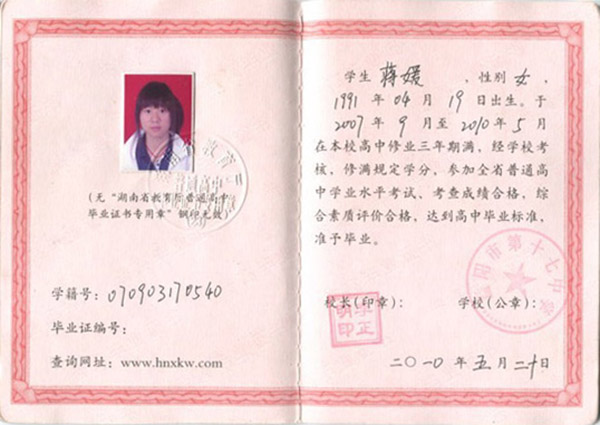 (无“湖南省教育厅普通高中
毕业证书专用章”钢印无效)
学籍号:070903170540
毕业证编号:
查询网址:www.hnxkw.com
学生 蒋媛 ,性别 女,
1991 年 04 月 19 日出生。于
2007 年 9 月至 2010 年 5 月
在本校高中修业三年期满,经学校考
核,修满规定学分,参加全省普通高
中学业水平考试、考查成绩合格,综
合素质评价合格,达到高中毕业标准,
准予毕业。
阳市第十七中学
校长(印章):
学校(公章):
李正
明印
二〇一〇年 五 月 二十日